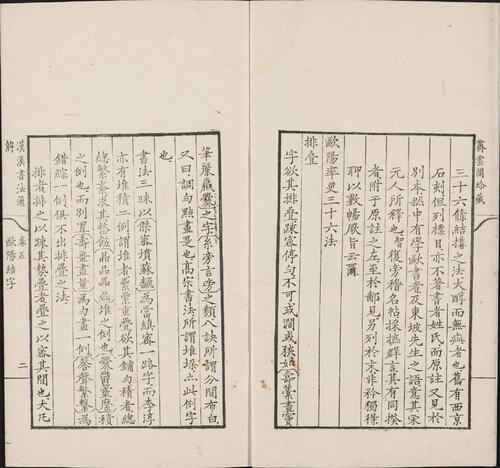 霽雲閣珍藏
三十六條結搆之法大醇而無疵者也舊有西京
石刻但列標目亦不著書者姓氏而原註又見於
別奉然中有學歐書者及東坡先生之語意其宋
元人所釋也智復旁稽名帖採摭群言其有同揆
者附于原註之左至於鄙見另列於末非矜獨得
聊以敷暢厥旨云爾
歐陽率更三十六法
排疊
字欲其排疊疎密停勻不可或濶或狹如壽藁畫寳
筆麗羸爨之字系旁言旁之類八訣所謂分間布白
又曰調勻點畫是也高宗書法所謂堆垜亦此例字
也
書法三昧以傑審墳蘇驪為當縝密一路字而李淳
亦有堆積二例謂堆者纍纍重疊欲其鋪勻積者總
總繁紊求其整飭晶品晶磊堆之例也爨鬱靈糜積
之例也而別置壽疊畫量為勻畫一例麠聲繁繫為
錯綜一例俱不出排疊之法
排者排之以疎其勢疊者疊之以審其間也大凡
漢溪書法通解
卷五
歐陽結字
二